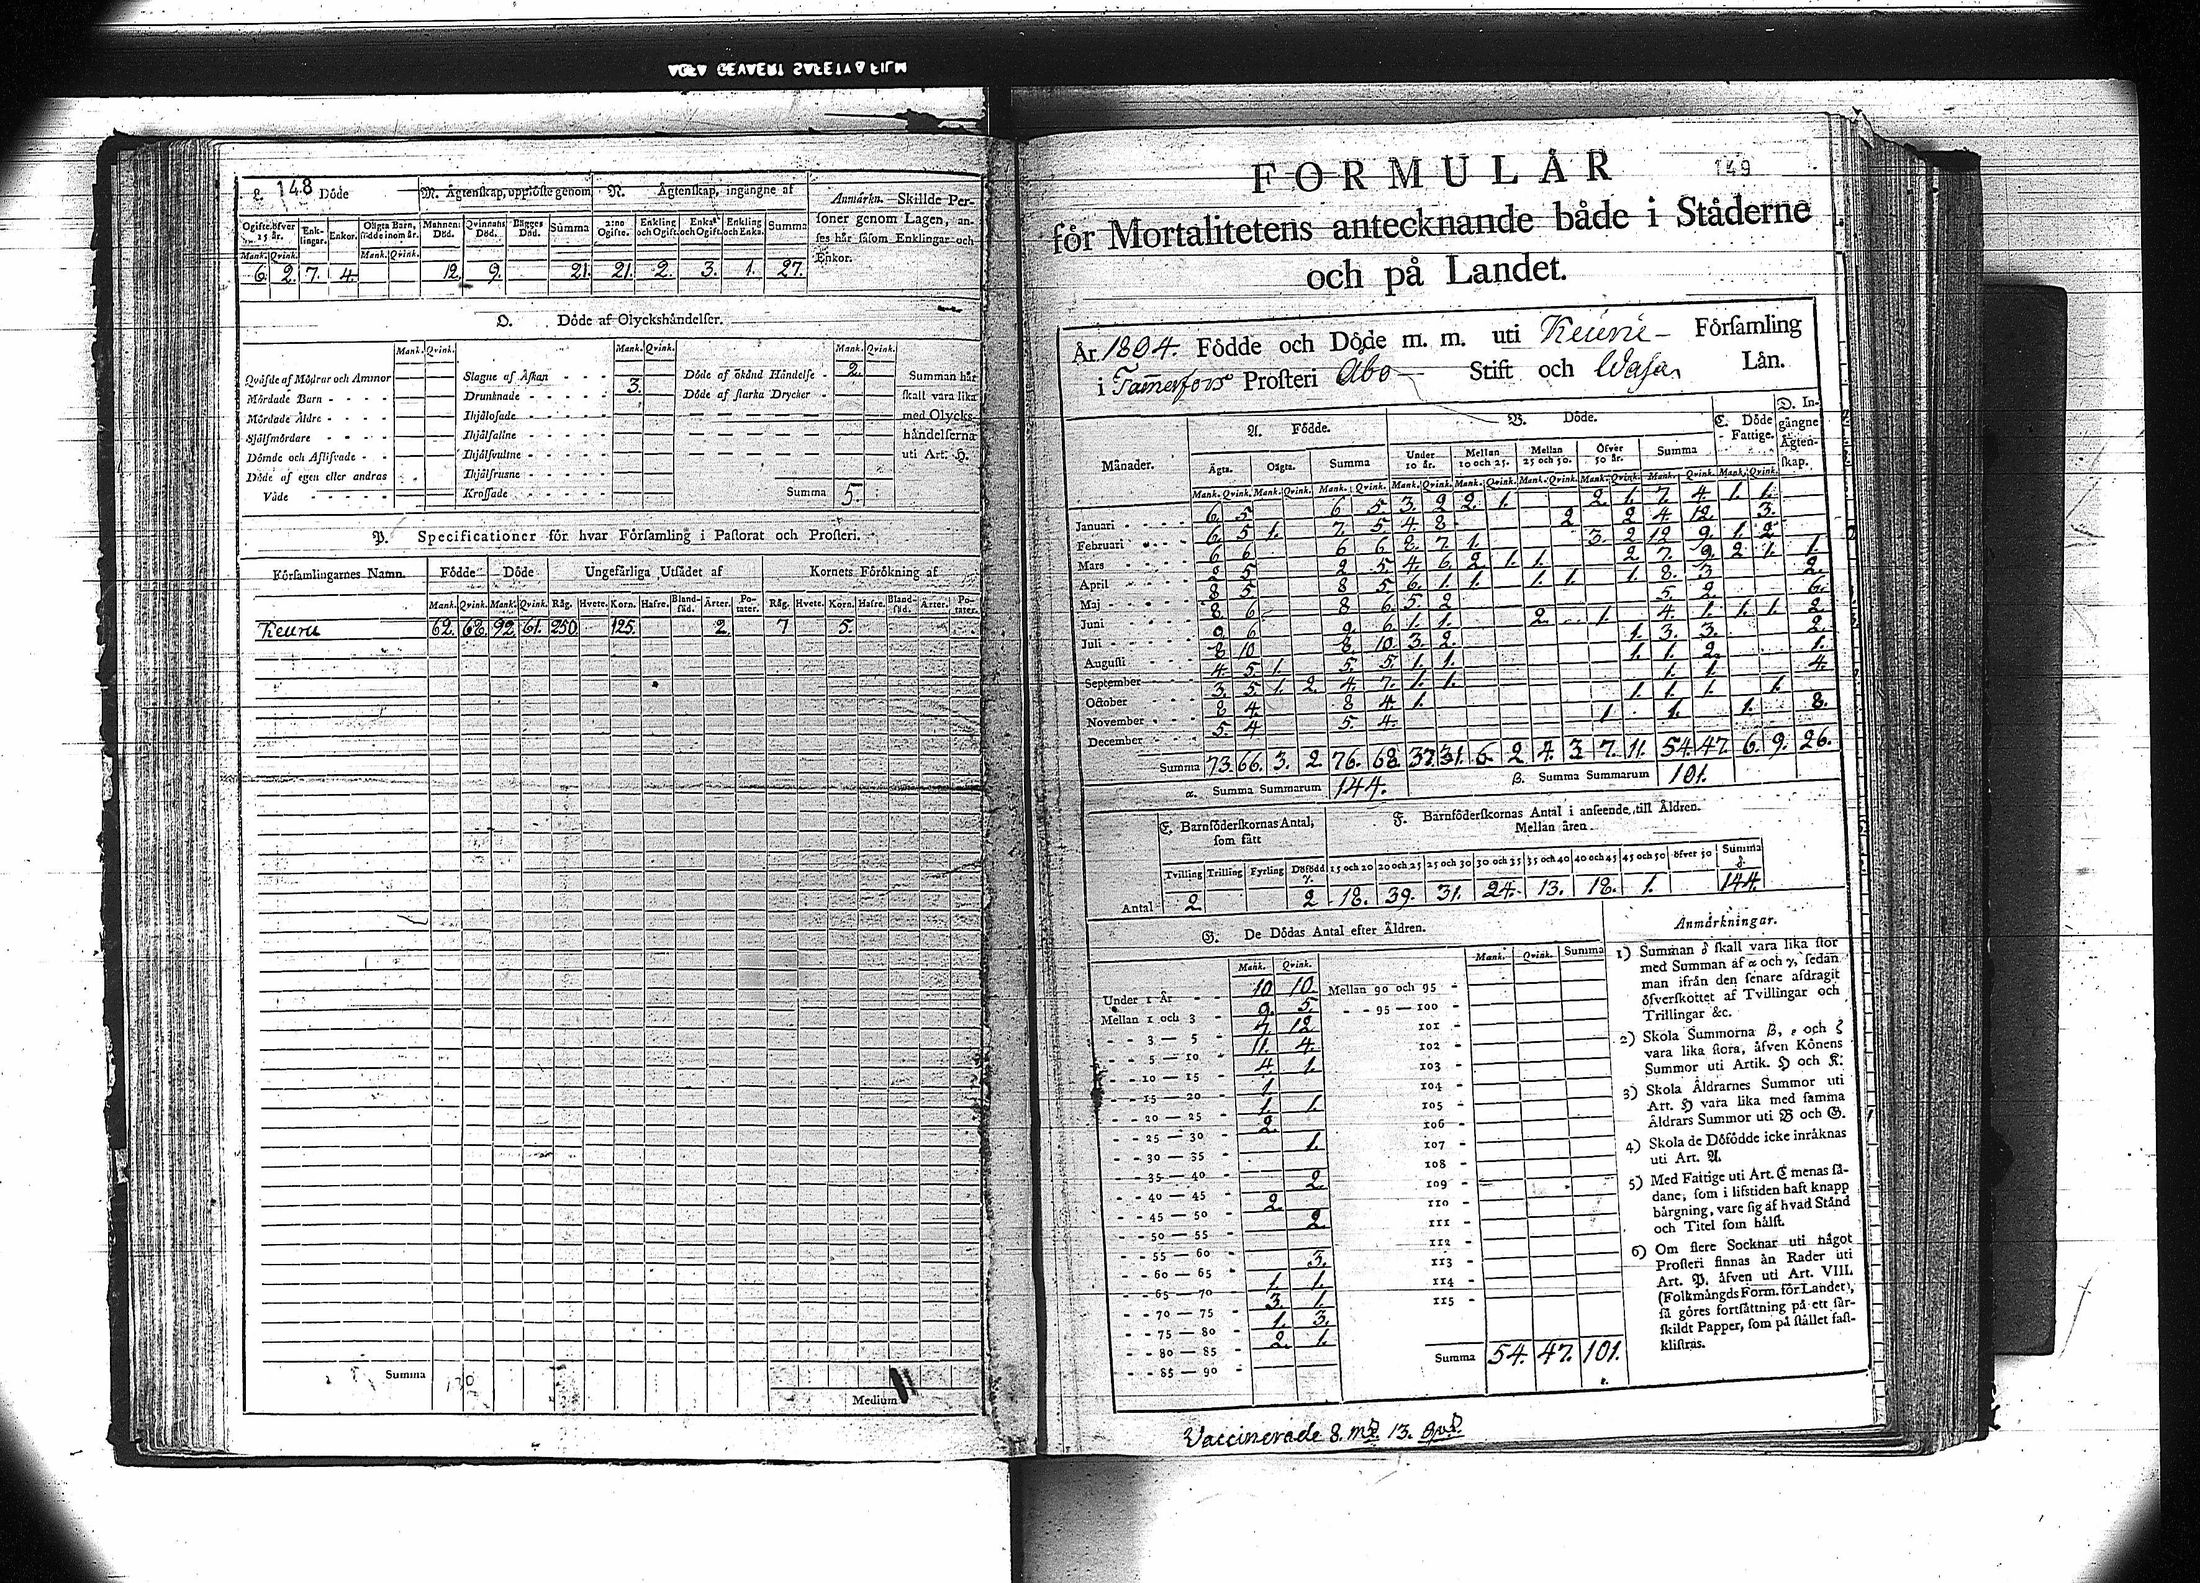 148
L. Döde
M. Ägtenskap, upplöste genom
N. Ägtenskap, ingångne af
Anmärkn. Skillde Per-
soner genom Lagen, an-
ses här såsom Enklingar och
Enkor.
Ogifte öfver 15 år. Enk-lingar. Enkor. Oägta Barn, födde inom år. Mannens Död. Qvinnans Död. Bägges Död. Summa 2:ne Ogifte. Enkling och Ogift. Enka och Ogift. Enkling och Enka. Summa
Mank. Qvink. Mank. Qvink.
6. 2. 7. 4. 12. 9. 21. 21. 2. 3. 1. 27.
O. Döde af Olyckshändelser.
Mank. Qvink. Mank. Qvink. Mank. Qvink.
Qväfde af Mödrar och Ammor
Mördade Barn - - - -
Mördade Äldre - - - -
Självmördare - - - -
Dömde och Aflifvade - -
Döde af egen eller andras
Våde - - - - -
Slagne af Åskan - - -
Drunknade - - - - - 3.
Ihjälfrosade - - - - -
Ihjälfallne - - - - -
Ihjälsvultne - - - - -
Ihjälfrusne - - - - -
Krossade - - - - -
Döde af okänd Händelse - 2.
Döde af starka Drycker -
Summa 5.
Summan här
skall vara lika
med Olycks-
händelserna
uti Art. H.
P. Specificationer för hvar Församling i Pastorat och Prosteri.
Församlingarnes Namn. Födde Döde Ungefärliga Utsädet af Kornets Förökning af
Mank. Qvink. Mank. Qvink. Råg. Hvete. Korn. Hafre. Bland-säd. Ärter. Po-tater. Råg. Hvete. Korn. Hafre. Bland-säd. Ärter. Po-tater.
Keuru 62. 68. 92. 61. 250. 125. 2. 7 5.
Summa
Medium
149
FORMULÄR
för Mortalitetens antecknande både i Städerne
och på Landet.
År 1804. Födde och Döde m. m. uti Keuru Församling
i Tammerfors Prosteri Åbo Stift och Wasa Län.
Månader. A. Födde. B. Döde. C. Döde Fattige. D. In-gångne Ägten-skap.
Ägta. Oägta. Summa Under 10 år. Mellan 10 och 25. Mellan 25 och 50. Öfver 50 år. Summa
Mank. Qvink. Mank. Qvink. Mank. Qvink. Mank. Qvink. Mank. Qvink. Mank. Qvink. Mank. Qvink. Mank. Qvink. Mank. Qvink.
Januari - - - 6. 5. 6 5 3. 2 2. 1. 2 1. 7. 4. 1. 1.
Februari - - - 6. 5 1. 7. 5 4 8 2 2 4. 12. 3.
Mars - - - 6 6 6 6 8. 7. 1. 3. 2 12 9. 1. 2
April - - - 2 5 2 5 4. 6 2. 1. 1. 2 7. 9. 2 1. 1.
Maj - - - 8 5 8 5 6. 1. 1. 1. 1. 1. 8. 3 2.
Juni - - - 8. 6 8 6. 5. 2 5. 2. 6.
Juli - - - 9. 6 9. 6 1. 1. 2. 1. 4. 1. 1. 1. 2
Augusti - - - 8 10 8. 10. 3. 2. 1. 3. 3. 2.
September 4. 5. 1. 5. 5. 1. 1. 1. 1. 2. 1.
October - - - 3. 5. 1. 2. 4. 7. 1. 1. 1. 1. 4.
November - - - 8 4. 8 4 1. 1. 1. 1. 1.
December - - - 5. 4 5. 4. 1. 1. 1. 8.
Summa 73. 66. 3. 2. 76. 68. 37. 31. 6. 2 4. 3. 7. 11. 54. 47. 6. 9. 26.
α. Summa Summarum 144. β. Summa Summarum 101.
E. Barnföderskornas Antal, som fått
F. Barnföderskornas Antal i anseende till Åldren.
Mellan åren.
Tvilling Trilling Fyrling Dödfödd γ. 15 och 20 20 och 25 25 och 30 30 och 35 35 och 40 40 och 45 45 och 50 öfver 50 Summa δ.
Antal 2 2 18. 39. 31. 24. 13. 18. 1. 144.
G. De Dödas Antal efter Åldren.
Mank. Qvink. Mank. Qvink. Summa
Under 1 År - - 10 10.
Mellan 1 och 3 - 9. 5.
- - 3 — 5 - 7. 12
- - 5 — 10 - 11. 4.
- - 10 — 15 - 4 1.
- - 15 — 20 - 1.
- - 20 — 25 - 1. 1.
- - 25 — 30 - 2.
- - 30 — 35 - 1.
- - 35 — 40 -
- - 40 — 45 - 2.
- - 45 — 50 - 2.
- - 50 — 55 - 2
- - 55 — 60 -
- - 60 — 65 - 3.
- - 65 — 70 - 1. 1.
- - 70 — 75 - 3. 1.
- - 75 — 80 - 1. 3.
- - 80 — 85 - 2. 1.
- - 85 — 90 -
Mellan 90 och 95 -
- - 95 — 100 -
101 -
102 -
103 -
104 -
105 -
106 -
107 -
108 -
109 -
110 -
111 -
112 -
113 -
114 -
115 -
Summa 54. 47. 101.
ε.
Anmärkningar.
1) Summan δ skall vara lika stor
med Summan af α och γ, sedan
man ifrån den senare afdragit
öfverskottet af Tvillingar och
Trillingar &c.
2) Skola Summorna β, ε och ζ
vara lika stora, äfven Könens
Summor uti Artik. H och K.
3) Skola Åldrarnes Summor uti
Art. H vara lika med samma
Åldrars Summor uti B och G.
4) Skola de Döfödde icke inräknas
uti Art. A.
5) Med Fattige uti Art. C menas så-
dane, som i lifstiden haft knapp
bärgning, vare sig af hvad Stånd
och Titel som hälst.
6) Om flere Socknar uti något
Prosteri finnas än Rader uti
Art. P, äfven uti Art. VIII.
(Folkmängds Form. för Landet),
så göres fortsättning på ett sär-
skildt Papper, som på stället fast-
klistras.
Vaccinerade 8. mk 13. qvk